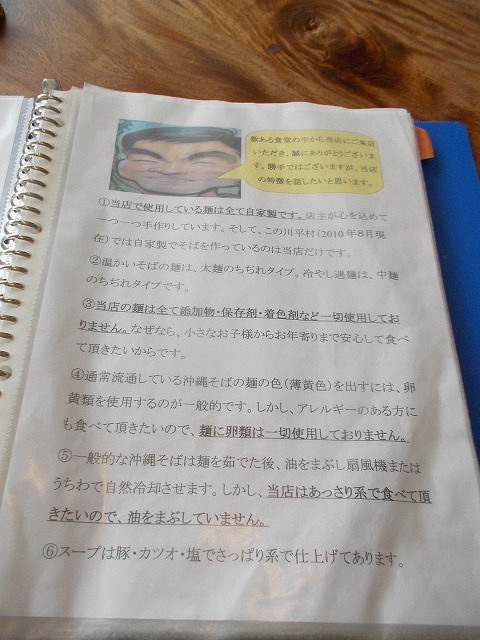 数ある食堂の中から当店にご来店
いただき、誠にありがとうございま
す。勝手ではございますが、当店
の特徴を話したいと思います。
①当店で使用している麺は全て自家製です。店主が心を込めて
一つ一つ手作りしています。そして、この川平村(2010年8月現
在)では自家製でそばを作っているのは当店だけです。
②温かいそばの麺は、太麺のちぢれタイプ。冷やし過麺は、中麺
のちぢれタイプです。
③当店の麺は全て添加物・保存剤・着色剤など一切使用してお
りません。なぜなら、小さなお子様からお年寄りまで安心して食べ
て頂きたいからです。
④通常流通している沖縄そばの麺の色(薄黄色)を出すには、卵
黄類を使用するのが一般的です。しかし、アレルギーのある方に
も食べて頂きたいので、麺に卵類は一切使用しておりません。
⑤一般的な沖縄そばは麺を茹でた後、油をまぶし扇風機または
うちわで自然冷却させます。しかし、当店はあっさり系で食べて頂
きたいので、油をまぶしていません。
⑥スープは豚・カツオ・塩でさっぱり系で仕上げてあります。